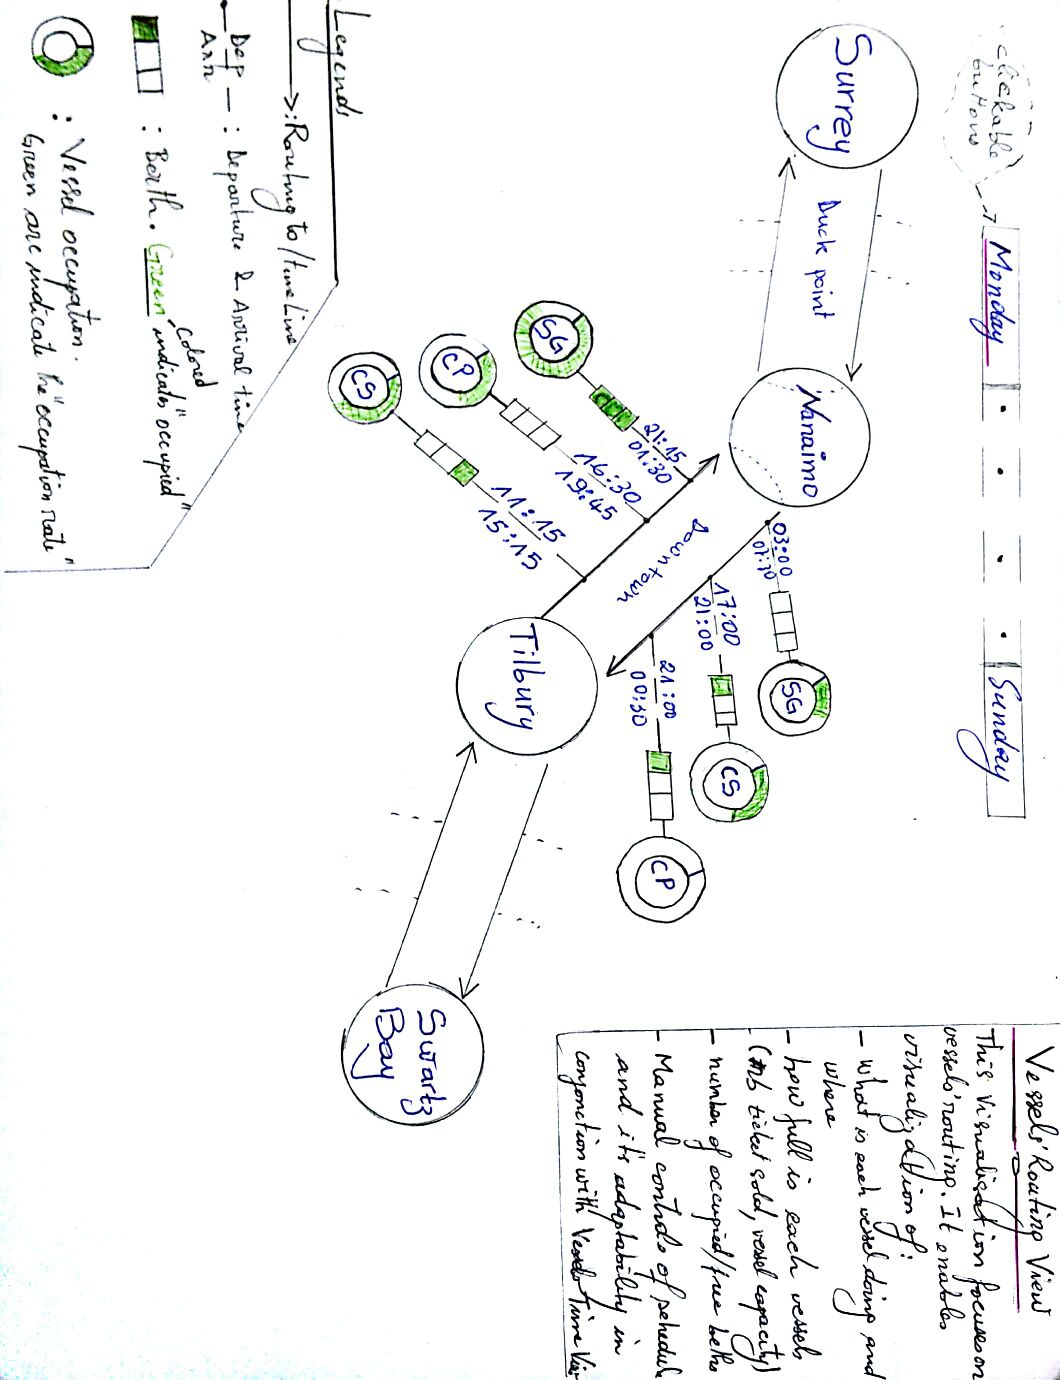 clickable
buttons
Monday
Sunday
Vessels' Routing View
This Visualisation focuses on
vessels' routing. It enables
visualization of:
- what is each vessel doing and
where
- how full is each vessels
(nb ticket sold, vessel capacity)
- number of occupied/free beths
- Manual controls of schedule
and it's adaptability in
conjonction with Vessels Time View
Surrey
Duck point
Nanaimo
03:00
07:30
SG
17:00
21:00
CS
21:00
00:30
CP
Downtown
21:15
01:30
SG
16:30
19:45
CP
11:15
15:15
CS
Tilbury
Swartz
Bay
Legends
: Routing to / time Line
Dep
Arr
: Departure & Arrival time
: Berth. Green colored indicates "occupied"
: Vessel occupation.
Green arc indicate the "occupation rate"